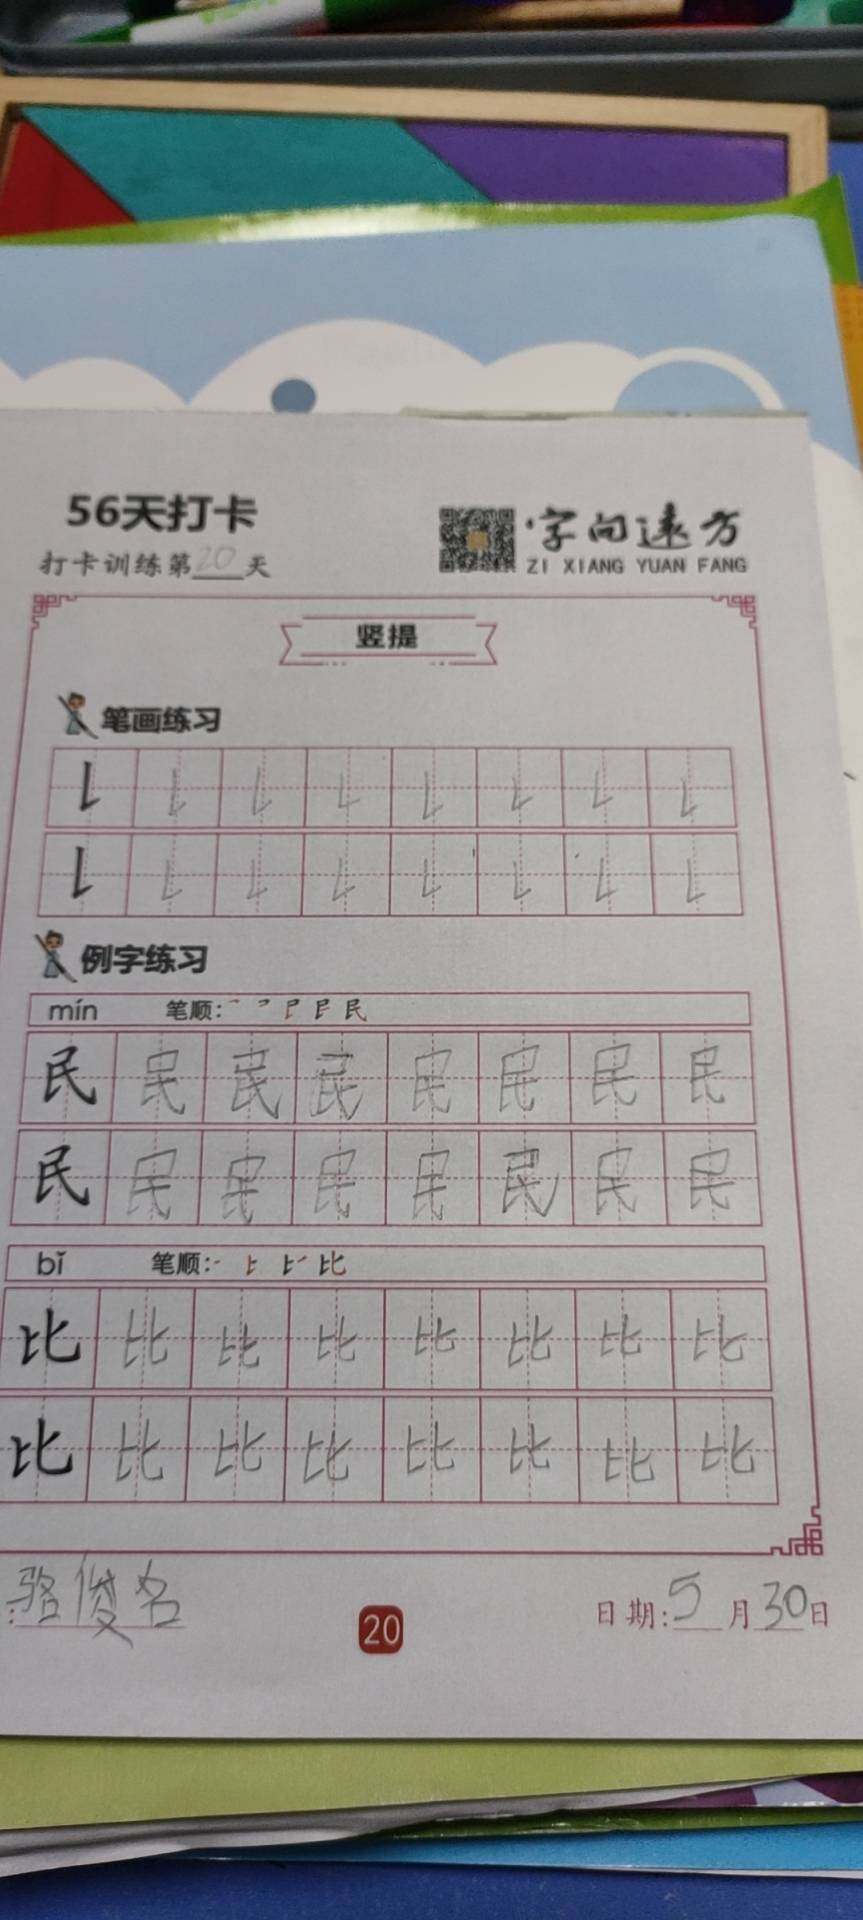 56天打卡
字向远方
打卡训练第20天
ZI XIANG YUAN FANG
竖提
笔画练习
例字练习
mín 笔顺:
民 民 民 民 民 民 民 民
民 民 民 民 民 民 民 民
bǐ 笔顺:
比 比 比 比 比 比 比 比
比 比 比 比 比 比 比 比
骆俊名
20
日期:5月30日